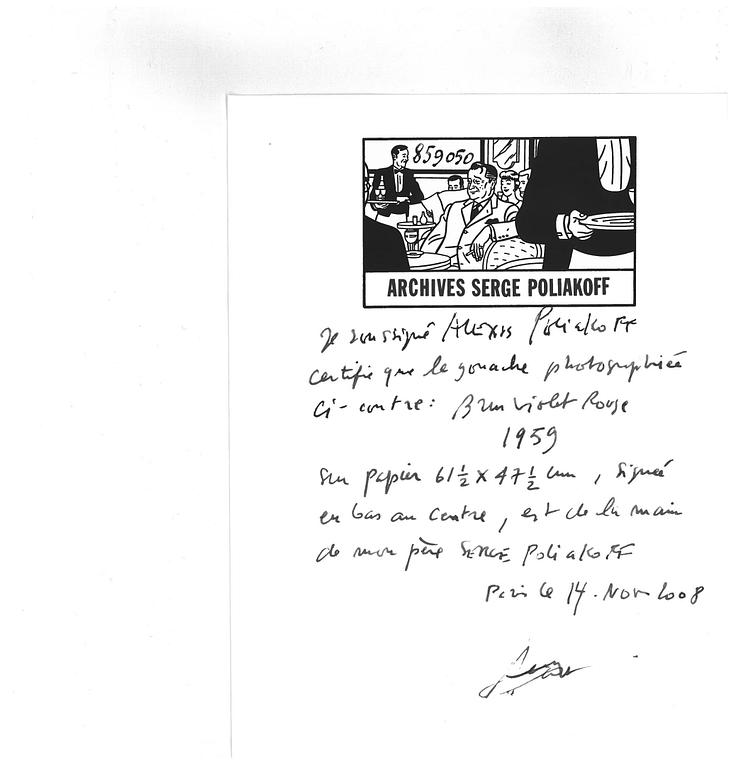 859050
ARCHIVES SERGE POLIAKOFF
Je soussigné ALEXIS POLIAKOFF
certifie que la gouache photographiée
ci-contre: Brun Violet Rouge
1959
Sur papier 61½ x 47½ cm, signée
en bas au centre, est de la main
de mon père SERGE POLIAKOFF
Paris le 14. Nov 2008